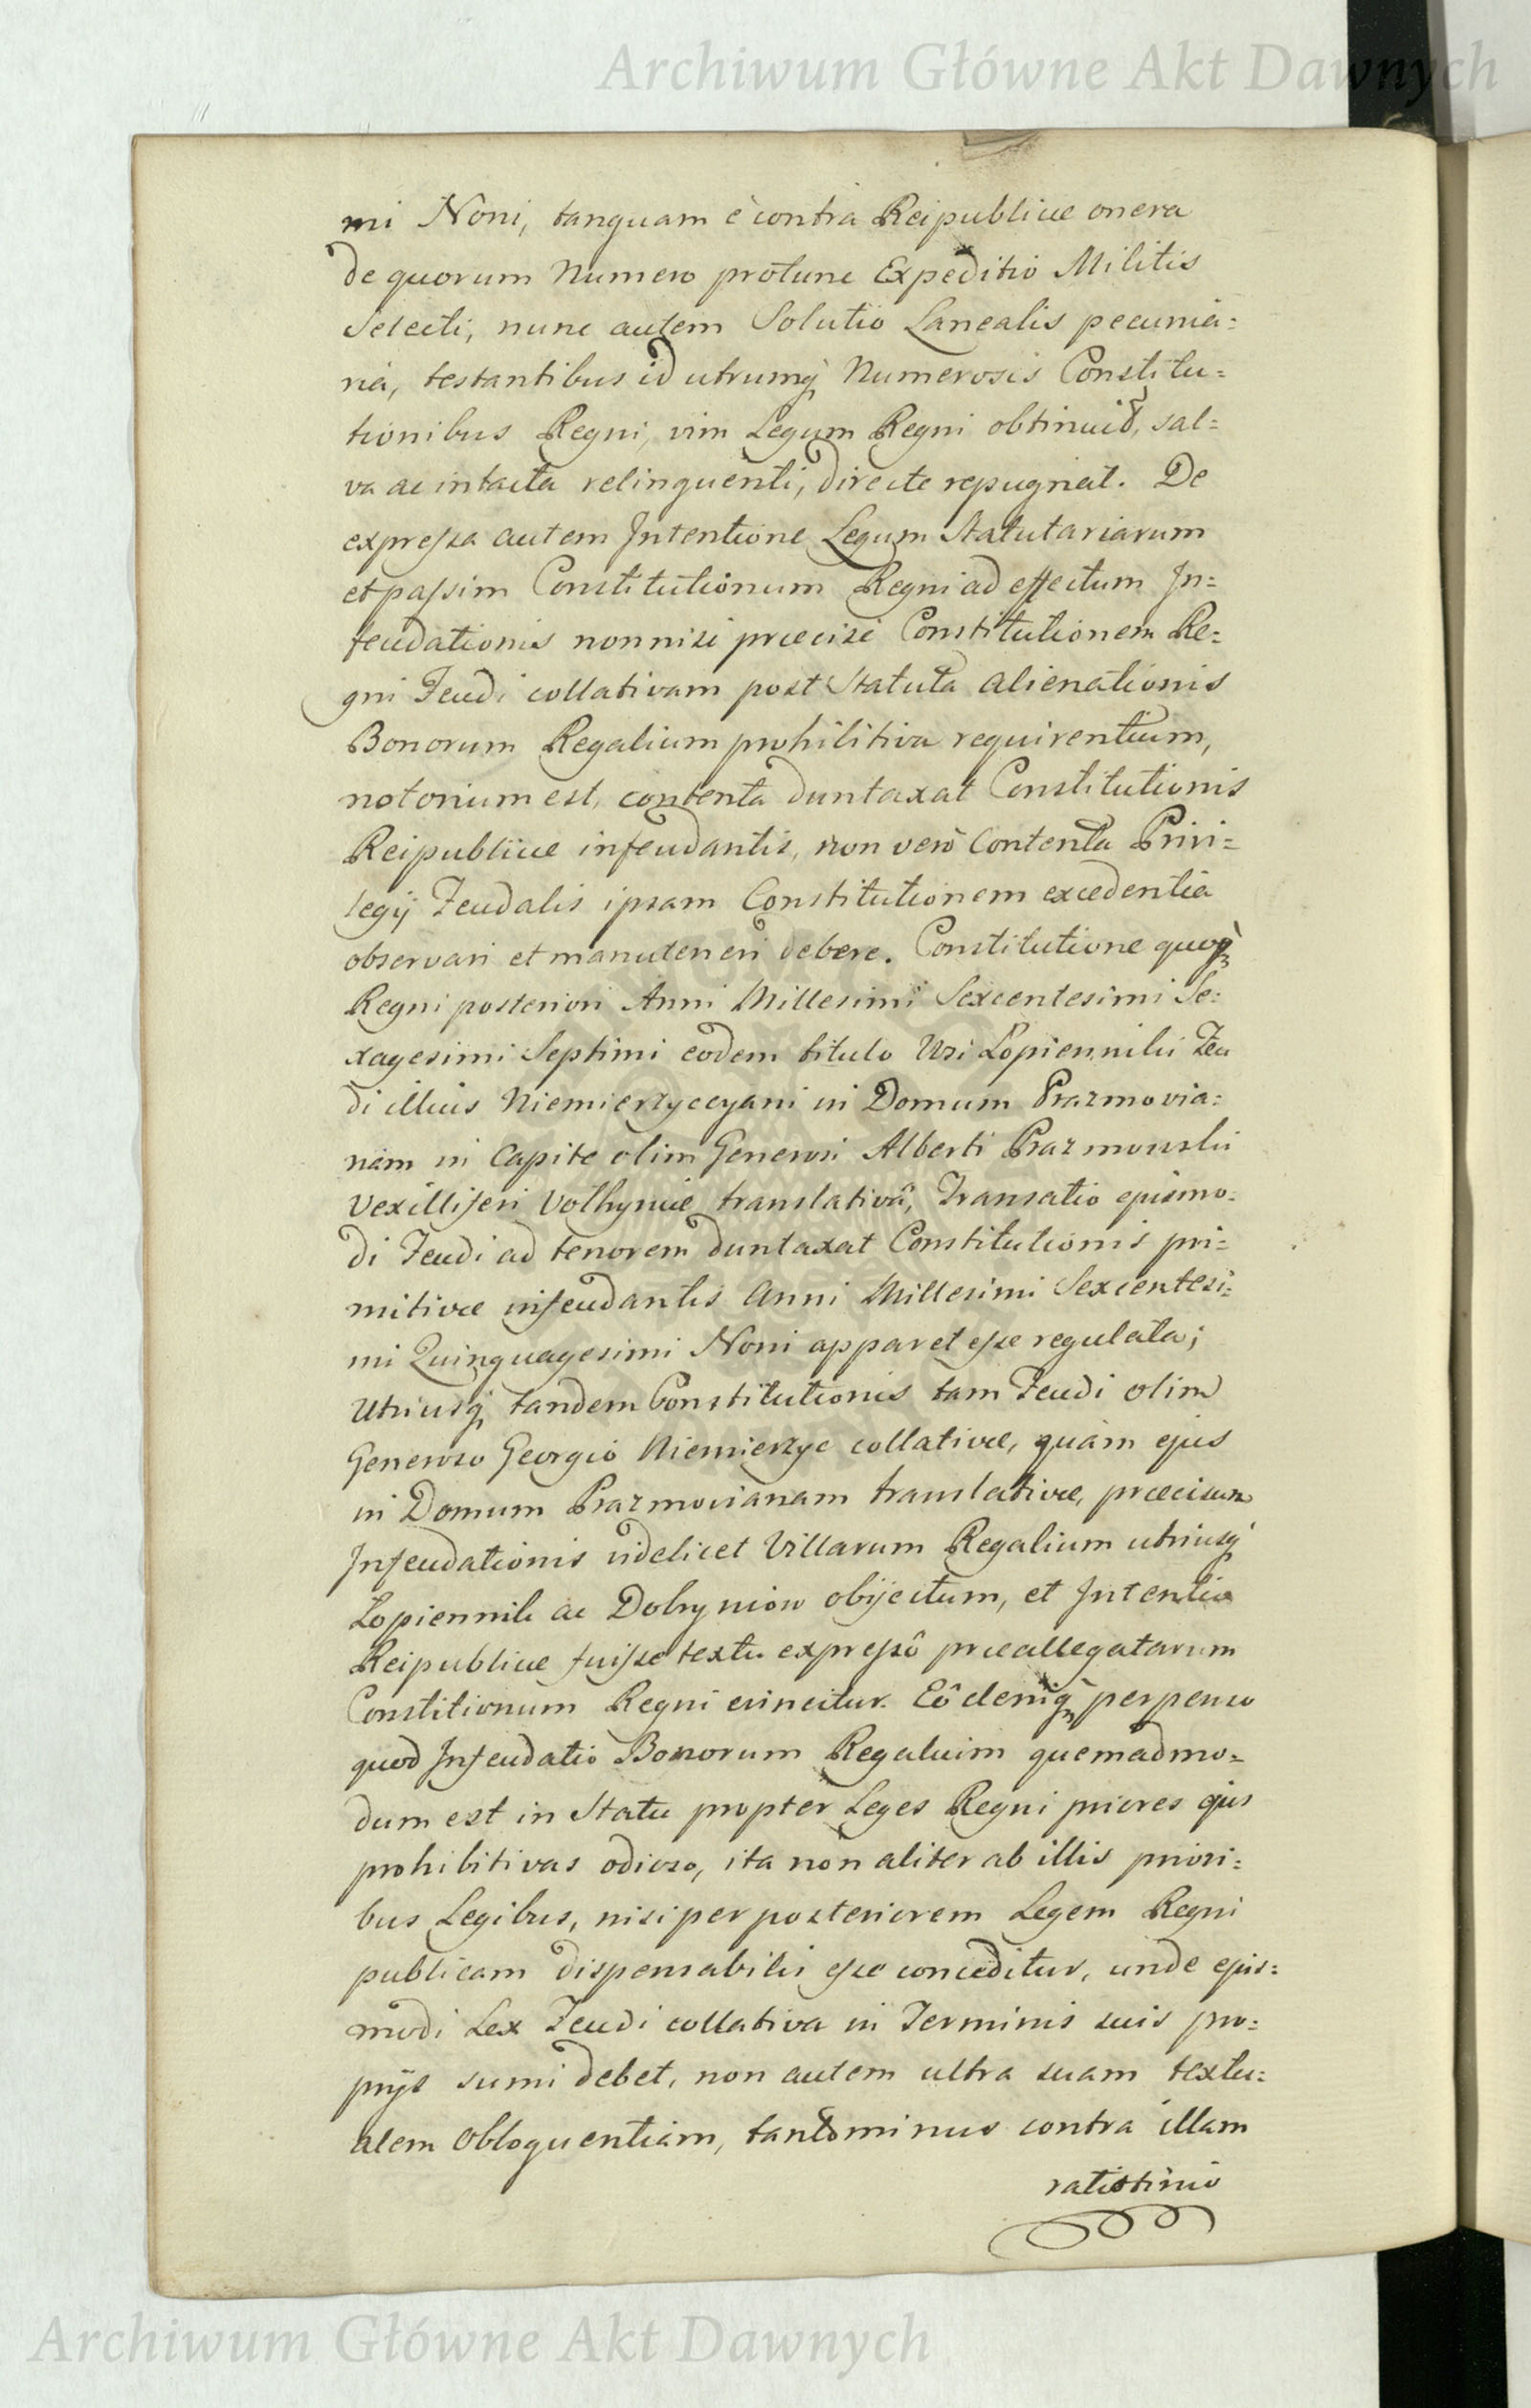 Archiwum Główne Akt Dawnych
mi Noni, tanquam è contra Reipublicæ onera
de quorum Numero protunc Expeditio Militis
Selecti, nunc autem Solutio Lanealis pecunia=
ria, testantibus id utrumq̀ Numerosis Constitu=
tionibus Regni, vim Legum Regni obtinuit, sal=
va ac intacta relinquenti, directe repugnat. De
expressa autem Intentione Legum Statutariarum
et passim Constitutionum Regni ad effectum In=
feudationis nonnisi præcisè Constitutionem Re=
gni Feudi collativam post Statuta alienationis
Bonorum Regalium prohibitiva requirentium,
notorium est, contenta duntaxat Constitutionis
Reipublicæ infeudantis, non verò Contenta Privi=
legij Feudalis ipsam Constitutionem excedentia
observari et manuteneri debere. Constitutione quoq̀
Regni posteriori Anni Millesimi Sexcentesimi Se=
xagesimi Septimi eodem titulo Wsi Łopiennikii Feu
di illius Niemierzyccyani in Domum Prazmovia=
nam in Capite olim Generosi Alberti Prazmowski
Vexilliferi Volhyniæ translativâ, Transatio ejusmo=
di Feudi ad tenorem duntaxat Constitutionis pri=
mitivæ infeudantis Anni Millesimi Sexcentesi=
mi Quinquagesimi Noni apparet esse regulata;
Utriusq̀ tandem Constitutionis tam Feudi olim
Generoso Georgio Niemierzyc collativæ, quàm ejus
in Domum Prazmovianam translativæ, præcisum
Infeudationis videlicet Villarum Regalium utriusq̀
Łopiennik ac Dobryniow objectum, et Intentio
Reipublicæ fuisse textu expressô præallegatarum
Constitionum Regni evincitur. Eô deniq̀ perpenso
quod Infeudatio Bonorum Regalium quemadmo=
dum est in Statu propter Leges Regni priores ejus
prohibitivas odioso, ita non aliter ab illis priori=
bus Legibus, nisi per posteriorem Legem Regni
publicam dispensabilis esse conceditur, unde ejus=
modi Lex Feudi collativa in Terminis suis pro=
prijs sumi debet, non autem ultra suam textu=
alem Obloquentiam, tantominus contra illam
ratiotinio
Archiwum Główne Akt Dawnych